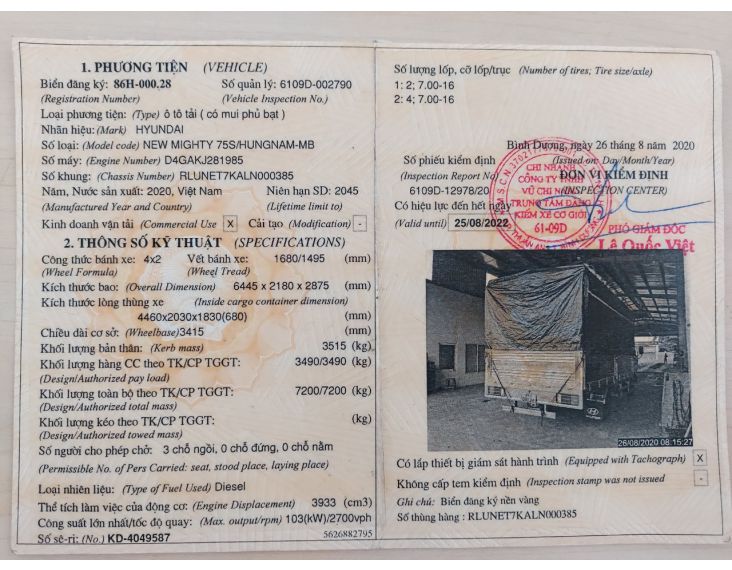 1. PHƯƠNG TIỆN (VEHICLE)
Biển đăng ký: 86H-000.28 Số quản lý: 6109D-002790
(Registration Number) (Vehicle Inspection No.)
Loại phương tiện: (Type) ô tô tải ( có mui phủ bạt )
Nhãn hiệu: (Mark) HYUNDAI
Số loại: (Model code) NEW MIGHTY 75S/HUNGNAM-MB
Số máy: (Engine Number) D4GAKJ281985
Số khung: (Chassis Number) RLUNET7KALN000385
Năm, Nước sản xuất: 2020, Việt Nam Niên hạn SD: 2045
(Manufactured Year and Country) (Lifetime limit to)
Kinh doanh vận tải (Commercial Use X Cải tạo (Modification) -
2. THÔNG SỐ KỸ THUẬT (SPECIFICATIONS)
Công thức bánh xe: 4x2 Vết bánh xe: 1680/1495 (mm)
(Wheel Formula) (Wheel Tread)
Kích thước bao: (Overall Dimension) 6445 x 2180 x 2875 (mm)
Kích thước lòng thùng xe (Inside cargo container dimension)
4460x2030x1830(680) (mm)
Chiều dài cơ sở: (Wheelbase)3415 (mm)
Khối lượng bản thân: (Kerb mass) 3515 (kg)
Khối lượng hàng CC theo TK/CP TGGT: 3490/3490 (kg)
(Design/Authorized pay load)
Khối lượng toàn bộ theo TK/CP TGGT: 7200/7200 (kg)
(Design/Authorized total mass)
Khối lượng kéo theo TK/CP TGGT: (kg)
(Design/Authorized towed mass)
Số người cho phép chở: 3 chỗ ngồi, 0 chỗ đứng, 0 chỗ nằm
(Permissible No. of Pers Carried: seat, stood place, laying place)
Loại nhiên liệu: (Type of Fuel Used) Diesel
Thể tích làm việc của động cơ: (Engine Displacement) 3933 (cm3)
Công suất lớn nhất/tốc độ quay: (Max. output/rpm) 103(kW)/2700vph
Số sê-ri: (No.) KD-4049587 5626882795
Số lượng lốp, cỡ lốp/trục (Number of tires; Tire size/axle)
1: 2; 7.00-16
2: 4; 7.00-16
Bình Dương, ngày 26 tháng 8 năm 2020
Số phiếu kiểm định (Issued on: Day/Month/Year)
(Inspection Report No ĐƠN VỊ KIỂM ĐỊNH
6109D-12978/20 (INSPECTION CENTER)
Có hiệu lực đến hết ngày
(Valid until) 25/08/2022
CHI NHÁNH
CÔNG TY TNHH
VŨ CHÍ
TRUNG TÂM ĐĂNG
KIỂM XE CƠ GIỚI
61-09D
PHÓ GIÁM ĐỐC
Lê Quốc Việt
26/08/2020 08:15:27
Có lắp thiết bị giám sát hành trình (Equipped with Tachograph) X
Không cấp tem kiểm định (Inspection stamp was not issued -
Ghi chú: Biển đăng ký nền vàng
Số thùng hàng : RLUNET7KALN000385